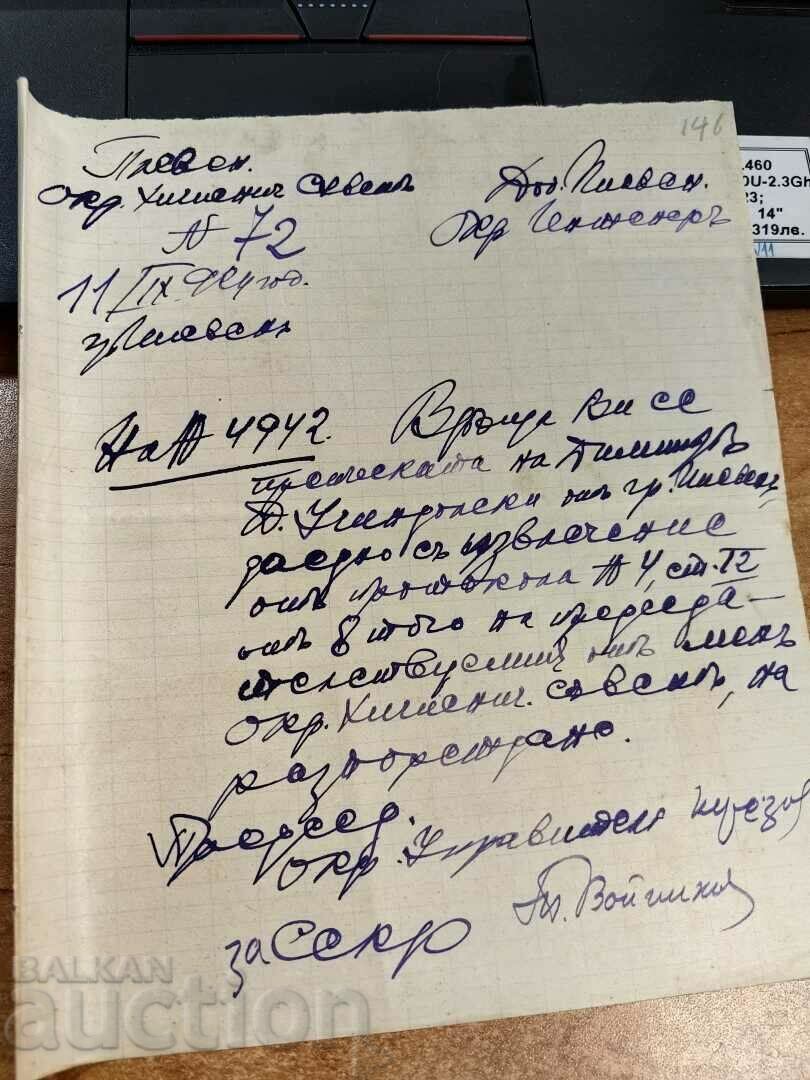 146
Плевен.
Окр. Хигиенич съветъ
N 72
11/IX 924 год.
гр. Плевенъ
До Г. Плевен.
Окр Инженеръ
На № 4942. Връща Ви се
преписката на Димитъръ
Д. Учиндолски отъ гр. Плевенъ,
заедно съ извлечение
отъ протокола № 4, ст. IV
отъ 8 того на председа-
телствуемия отъ менъ
Окр. Хигиенич. съветъ, на
разпореждане.
Председ.
Окр. Управител
за Секр
L460
0U-2.3Gh
23;
14"
319лв.
BALKAN
auction